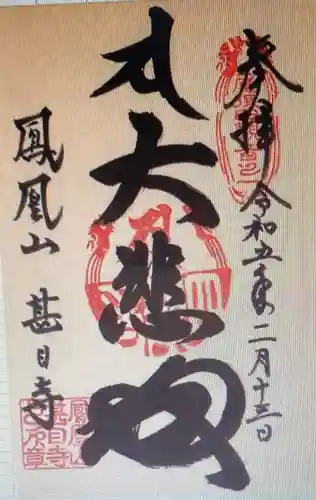 奉拝
令和五年二月十三日
大悲殿
鳳凰山 甚目寺